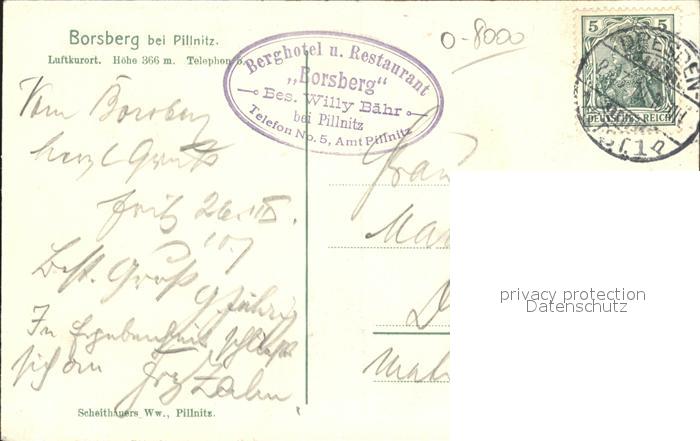 Borsberg bei Pillnitz.
Luftkurort. Höhe 366 m. Telephon
Berghotel u. Restaurant
„Borsberg“
Bes. Willy Bähr
bei Pillnitz
Telefon No. 5, Amt Pillnitz
0-8000
5 5
DEUTSCHES REICH
DRESDEN-
Vom Borsberg
herzl. Gruß
Fritz
Best. Gruß
In Ergebenheit
sich an
Frau
privacy protection
Datenschutz
Scheithauers Ww., Pillnitz.